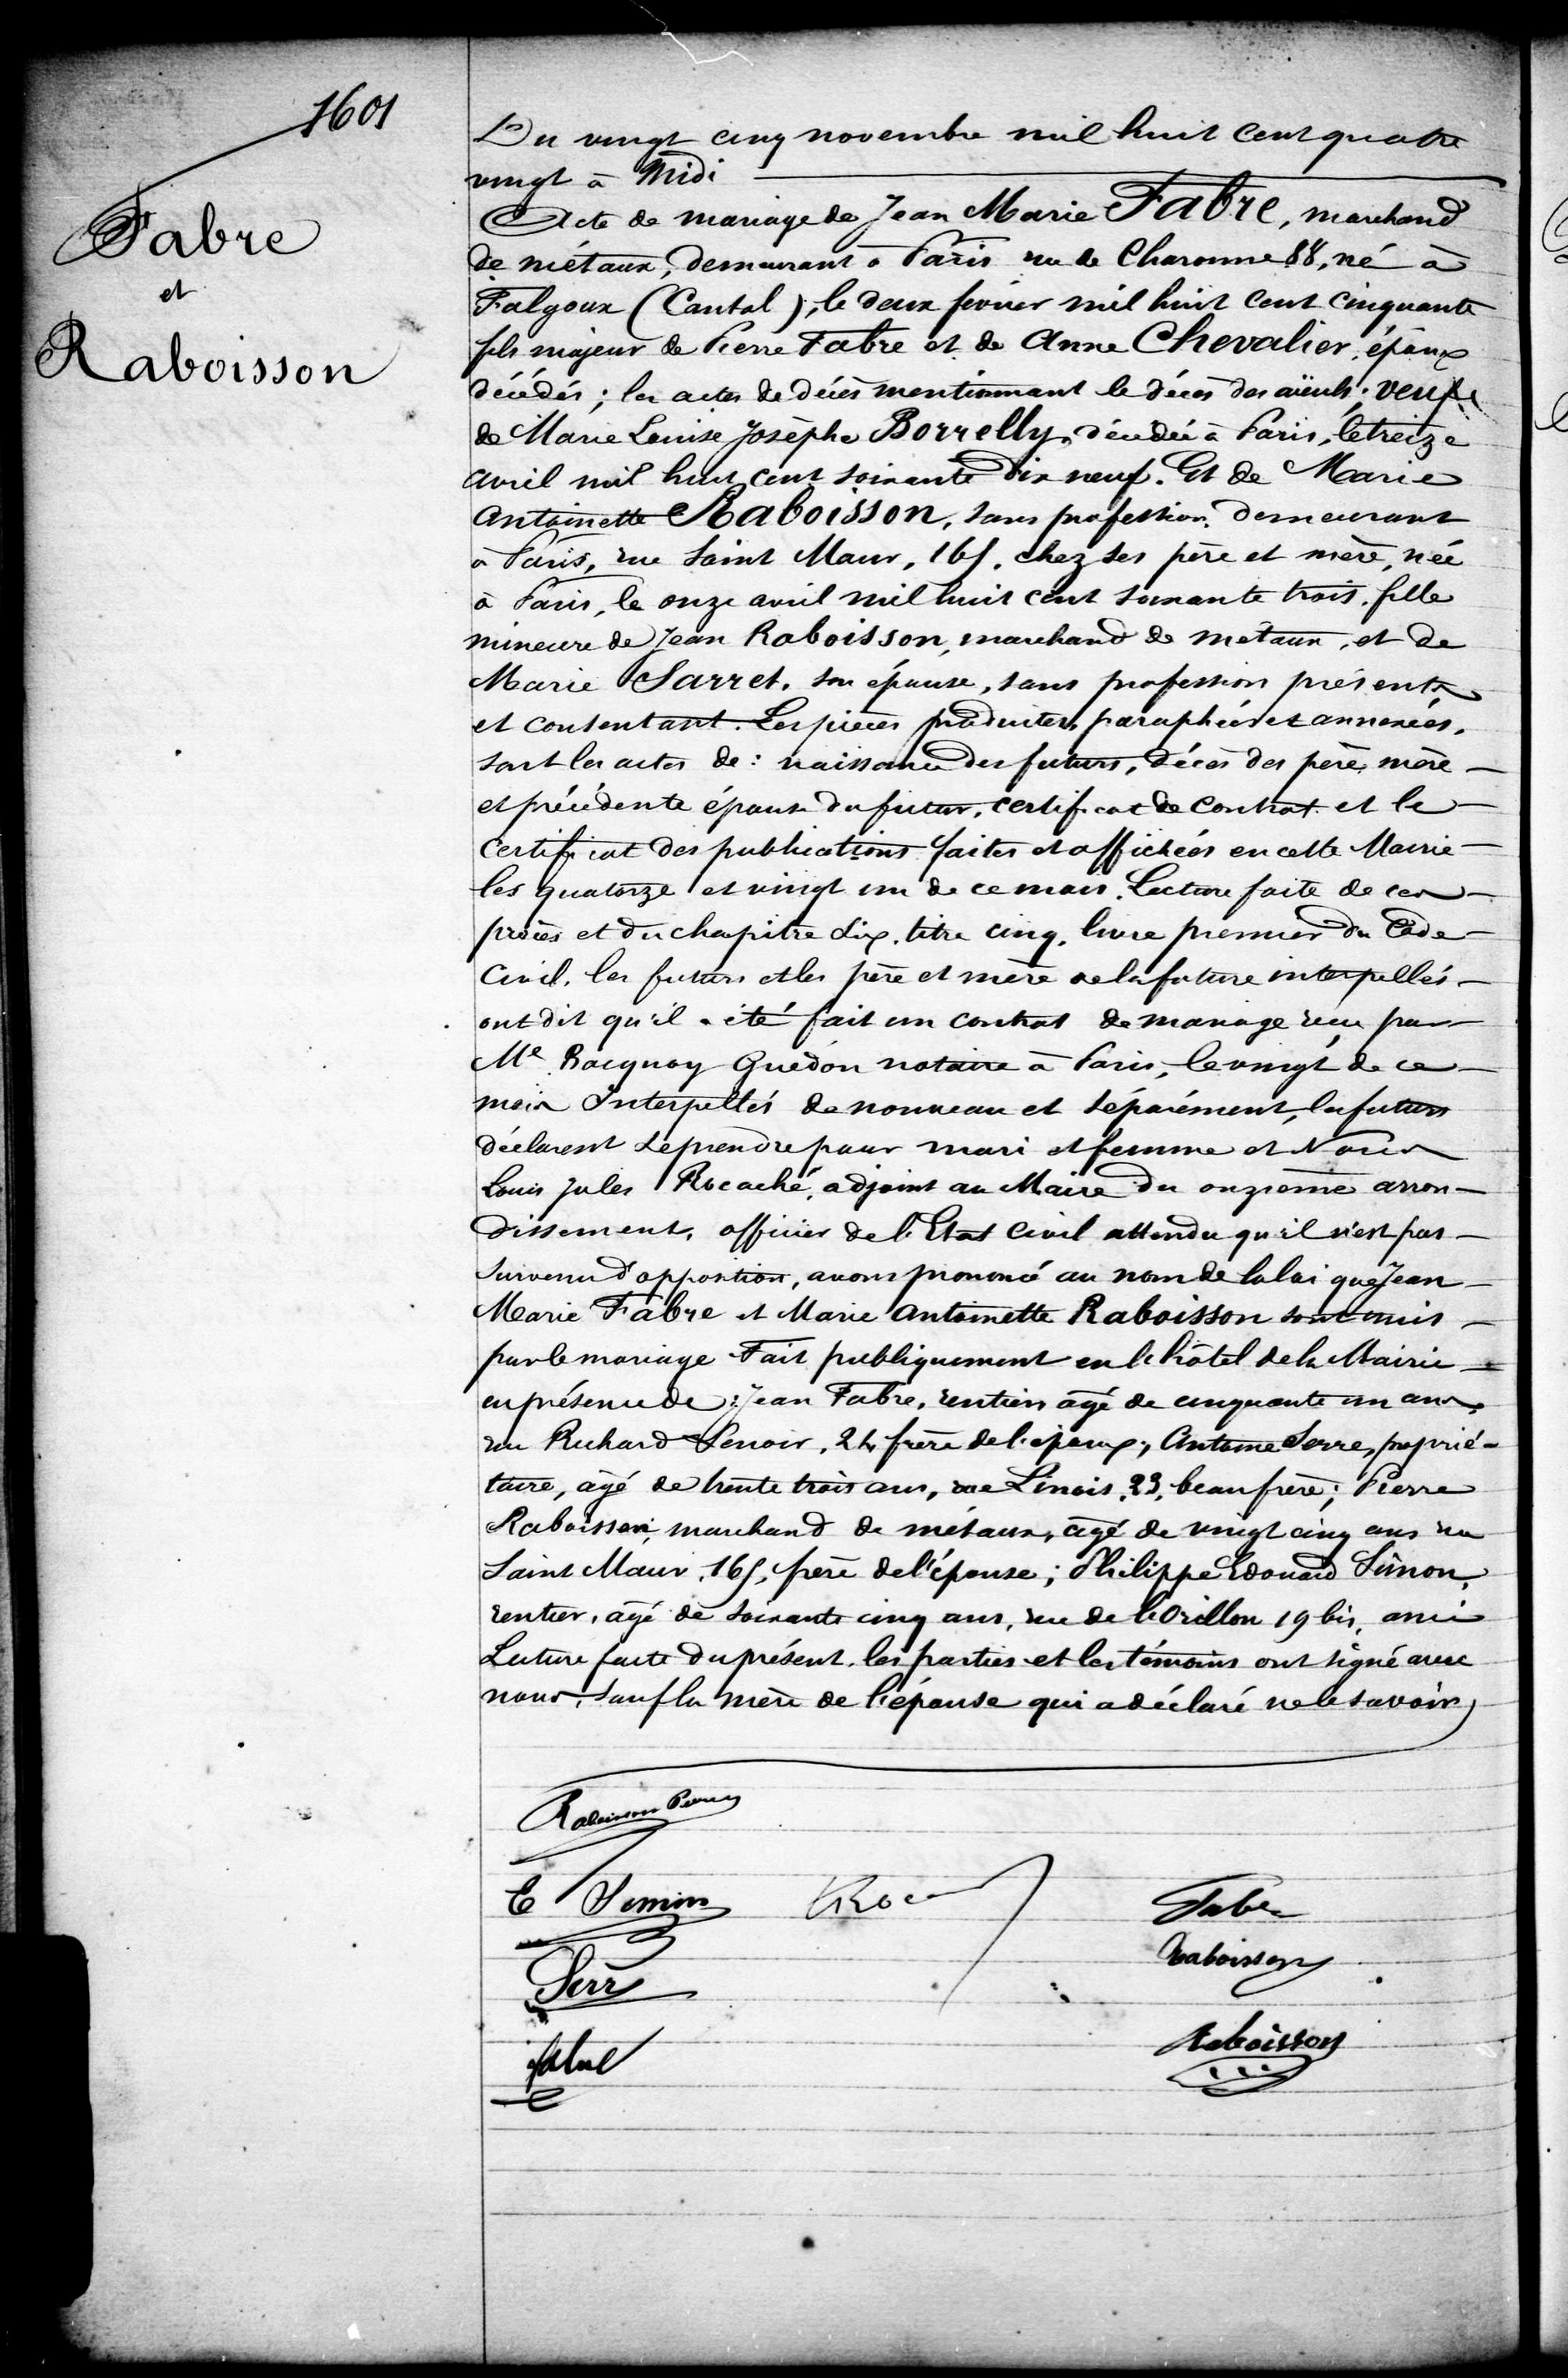 1601
Fabre
et
Raboisson
Du vingt cinq novembre mil huit cent quatre
vingt à Midi
Acte de mariage de Jean Marie Fabre, marchand
de métaux, demeurant à Paris rue de Charonne 88, né à
Falgoux (Cantal), le deux fevrier mil huit cent cinquante
fils majeur de Pierre Fabre et de Anne Chevalier, époux
décédés; les actes de décès mentionnant le décès des aïeuls; veuf
de Marie Louise Josèphe Borrelly, décédée à Paris, le treize
avril mil huit cent soixante dix neuf. Et de Marie
Antoinette Raboisson, sans profession, demeurant
à Paris, rue Saint Maur, 165, chez ses père et mère, née
à Paris, le onze avril mil huit cent soixante trois, fille
mineure de Jean Raboisson, marchand de metaux, et de
Marie Sarret, son épouse, sans profession présents
et consentant. Les pièces produites, paraphées et annexées,
sont les actes de: naissance des futurs, décès des père, mère
et précédente épouse du futur, certificat de contrat et le
certificat des publications faites et affichées en cette Mairie
les quatorze et vingt un de ce mois. Lecture faite de ces
pièces et du chapitre six, titre cinq, livre premier du Code
Civil, les futurs et les père et mère de la future interpellés
ont dit qu'il a été fait un contrat de mariage reçu par
Me Racquoy Guédon notaire à Paris, le vingt de ce
mois Interpellés de nouveau et séparément, les futurs
déclarent se prendre pour mari et femme et Nous
Louis Jules Rocaché, adjoint au Maire du onzième arron-
dissement, officier de l'Etat Civil attendu qu'il n'est pas
survenu d'opposition, avons prononcé au nom de la loi que Jean
Marie Fabre et Marie Antoinette Raboisson sont unis
par le mariage Fait publiquement en l'hôtel de la Mairie
en présence de: Jean Fabre, rentier âgé de cinquante un ans,
rue Richard Lenoir, 24, frère de l'époux; Antoine Serre, proprié-
taire, âgé de trente trois ans, rue Linois, 23, beau frère; Pierre
Raboisson, marchand de métaux, âgé de vingt cinq ans rue
Saint Maur, 165, frère de l'épouse; Philippe Edouard Simon,
rentier, âgé de soixante cinq ans, rue de l'Orillon 19 bis, ami
Lecture faite du présent, les parties et les témoins ont signé avec
nous, sauf la mère de l'épouse qui a déclaré ne le savoir
Raboisson Pierre
E Simon
Fabre
Raboisson
Serre
Raboisson